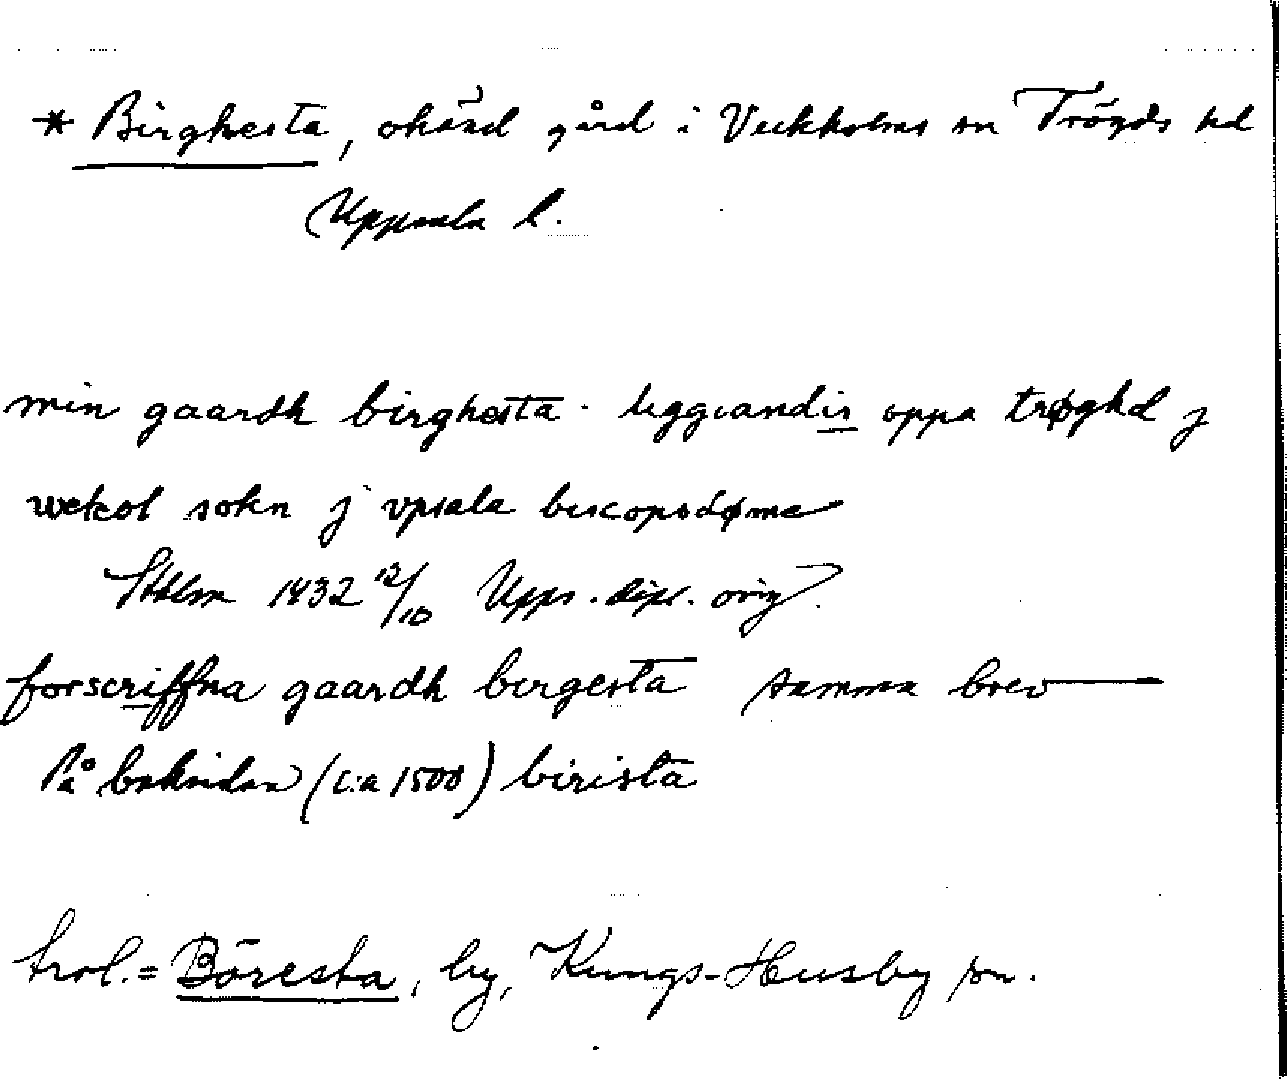 * Birghesta, okänd gård i Veckholms sn Trögds hd
Uppsala l.
min gaardh birghesta liggiandis oppa trøghd j
wekol sokn j vpsala biscopsdøme
Sthlm 1432 12/10 Upps. dipl. orig.
forscriffna gaardh birgesta samma brev
På baksidan (c:a 1500) birista
trol. = Böresta, by, Kungs-Husby sn.